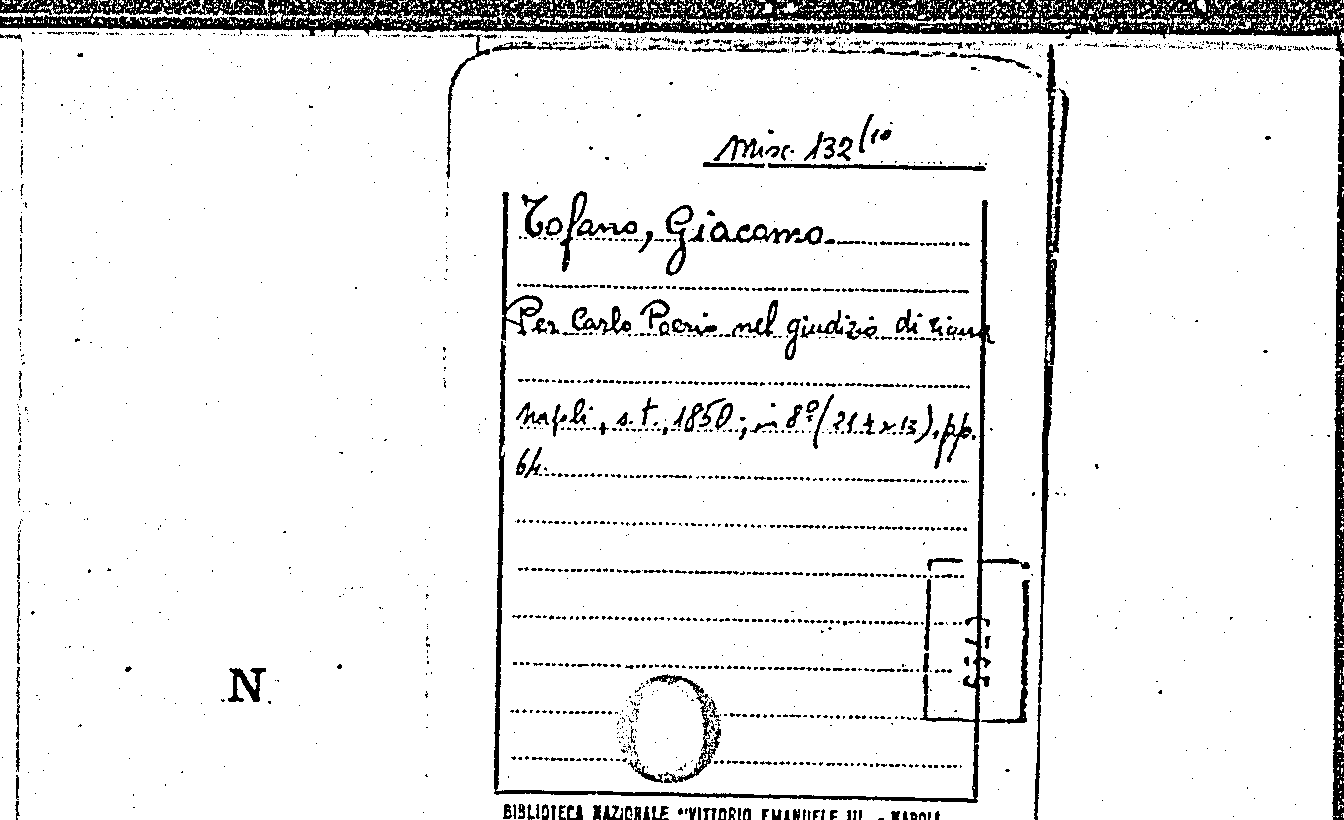 Misc. 132/10
Tofano, Giacomo.
Per Carlo Poerio nel giudizio di
Napoli, s.t., 1850; in 8º (21 x 13), pp.
64.
N
BIBLIOTECA NAZIONALE "VITTORIO EMANUELE III - NAPOLI